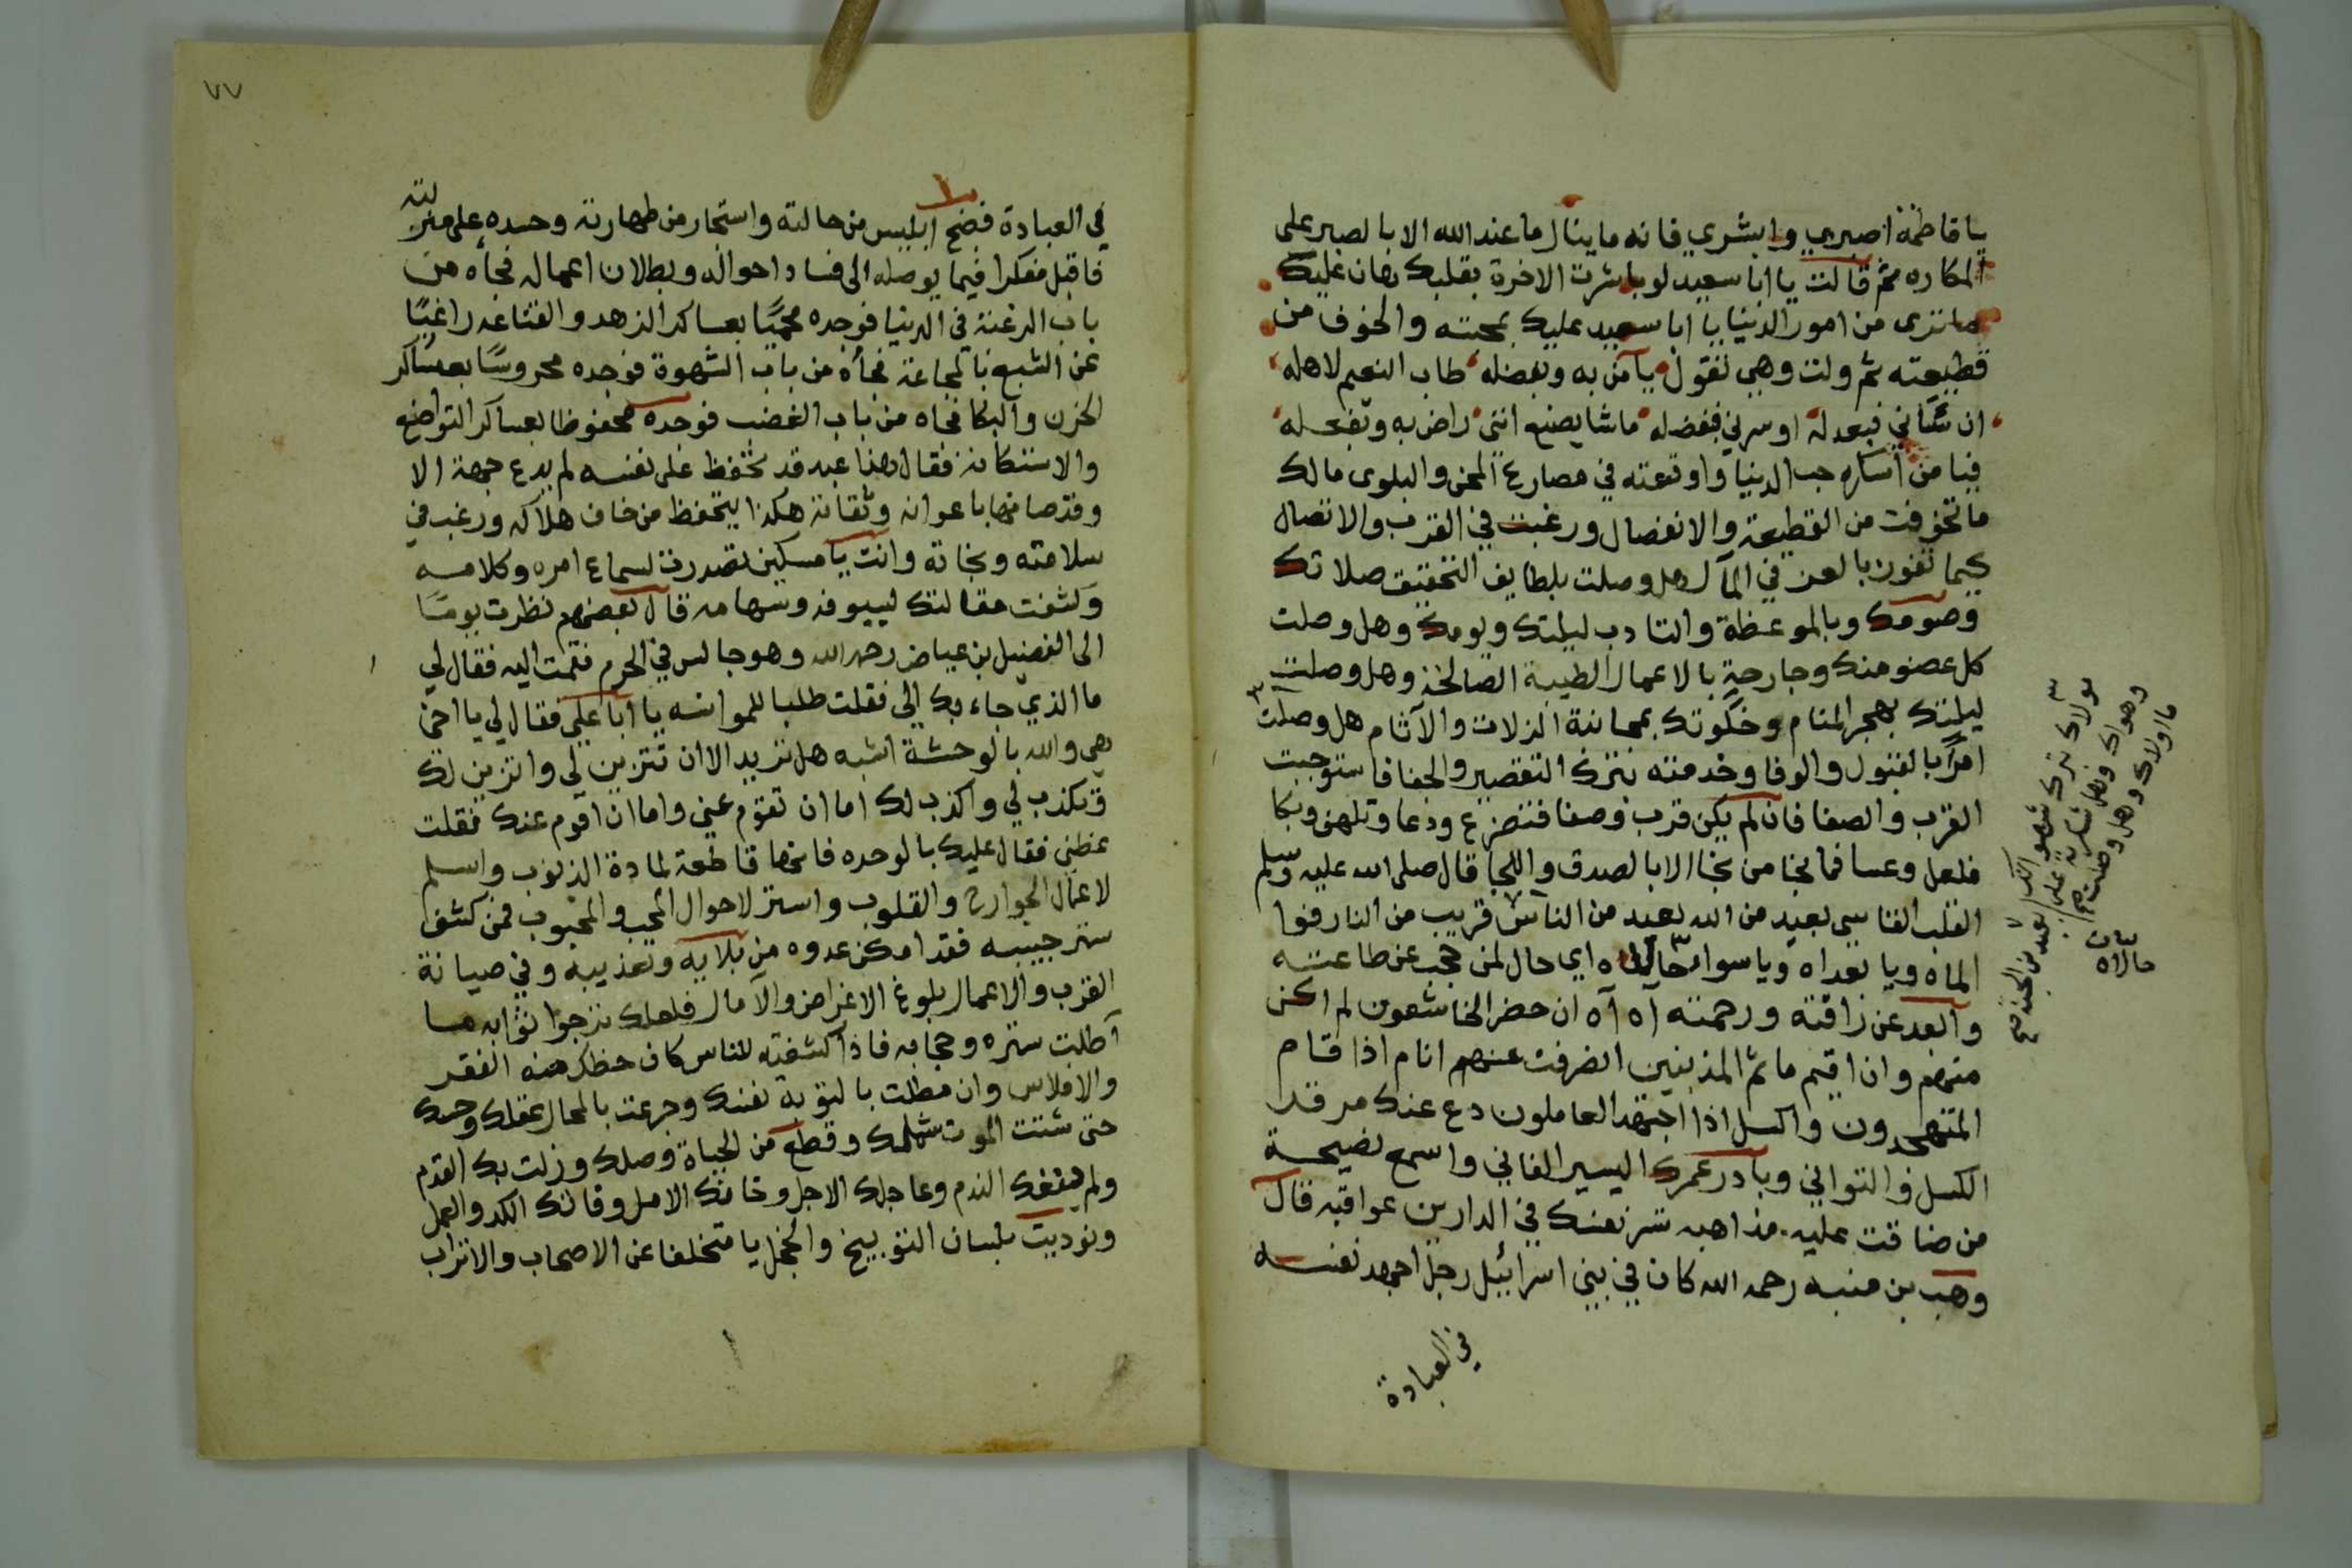 يا فاطمة اصبري وابشري فانه ما ينال ما عند الله الا بالصبر على
المكاره ثم قالت يا ابا سعيد لو باشرت الاخرة بقلبك لهان عليك
ما ترى من امور الدنيا يا ابا سعيد عليك بمحبته والخوف من
قطيعته ثم ولت وهي تقول يا من به وبفضله طاب النعيم لاهله
ان سآني فبعدله او سرني فبفضله ما شا يصنع انني راض به وبفعله
فيا من اسكره حب الدنيا واوقعته في مصارع المحن والبلوى مالك
ما تخوفت من القطيعة والانفصال ورغبت في القرب والاتصال
كيما تفوز بالعز في المآل هل وصلت بلطايف التحقيق صلاتك
وصومك وبالموعظة والتادب ليلتك ويومك وهل وصلت
كل عضو منك وجارحة بالاعمال الطيبة الصالحة وهل وصلت
ليلتك بهجر المنام وخلوتك بمجانبة الزلات والآثام هل وصلت
امرا بالقبول والوفا وخدمته بترك التقصير والجفا فاستوجبت
القرب والصفا فان لم يكن قرب وصفا فتضرع ودعا وتلهف وبكا
فلعل وعسا فما نجا من نجا الا بالصدق واللجا قال صلى الله عليه وسلم
القلب القاسي بعيد من الله بعيد من الناس قريب من النار فوا
الماه ويا بعداه ويا سوا حالاه اي حال لمن حجب عن طاعته
وابعد عن رافته ورحمته آه آه ان حضر الخاشعون لم اكن
منهم وان اقيم ماتم المذنبين انصرفت عنهم انام اذا قام
المتهجدون واكسل اذا اجتهد العاملون دع عنك مرقد
الكسل والتواني وبادر عمرك اليسير الفاني واسمع نصيحة
من ضاقت عليه مذاهبه شر نفسك في الدارين عواقبه قال
وهب بن منبه رحمه الله كان في بني اسرائيل رجل اجهد نفسه
في العبادة
مولاك بترك شهو
وهواك وهل
ما اولاك وهل وصلت
بعد من الجنة صح
بيان
حالاه
٧٧
في العبادة فضج ابليس من حالته واستجار من طهارته وحسده على منزلته
فاقبل مفكرا فيما يوصله الى فساد احواله وبطلان اعماله فجأه من
باب الرغبة في الدنيا فوجده محميًا بعساكر الزهد والقناعه راغبًا
عن الشبع بالمجاعة فجأه من باب الشهوة فوجده محروسًا بعساكر
الحزن والبكا فجاه من باب الغضب فوجده محفوظا بعساكر التواضع
والاستكانة فقال هذا عبد قد تحفظ على نفسه لم يدع جهة الا
وقد صانها باعوانه وثقاته هكذا يتحفظ من خاف هلاكه ورغب في
سلامته ونجاته وانت يا مسكين تصدرت لسماع امره وكلامه
وكشفت مقاتلك لسيوفه وسهامه قال بعضهم نظرت يومًا
الى الفضيل بن عياض رحمه الله وهو جالس في الحرم فقمت اليه فقال لي
ما الذي جاء بك الي فقلت طلبا للموانسه يا ابا علي فقال لي يا اخي
هي والله بالوحشة اشبه هل تريد الا ان تتزين لي واتزين لك
وتكذب لي واكذب لك اما ان تقوم عني واما ان اقوم عنك فقلت
عظني فقال عليك بالوحده فانها قاطعة لمادة الذنوب واسلم
لاعمال الجوارح والقلوب واستر لاحوال المحب والمحبوب فمن كشف
ستر حبيبه فقد امكن عدوه من بلايه وتعذيبه وفي صيانة
القرب والاعمال بلوغ الاغراض والآمال فلعلك ترجوا ثوابه ما
اطلت ستره وحجابه فاذا كشفته للناس كان حظك منه الفقر
والافلاس وان مطلت بالتوبة نفسك وجرعت بالمحال عقلك وحسك
حتى شتت الموت شملك وقطع من الحياة وصلك وزلت بك القدم
ولم ينفعك الندم وعاجلك الاجل وخانك الامل وفاتك الكد والعمل
ونوديت بلسان التوبيخ والخجل يا متخلفا عن الاصحاب والاتراب